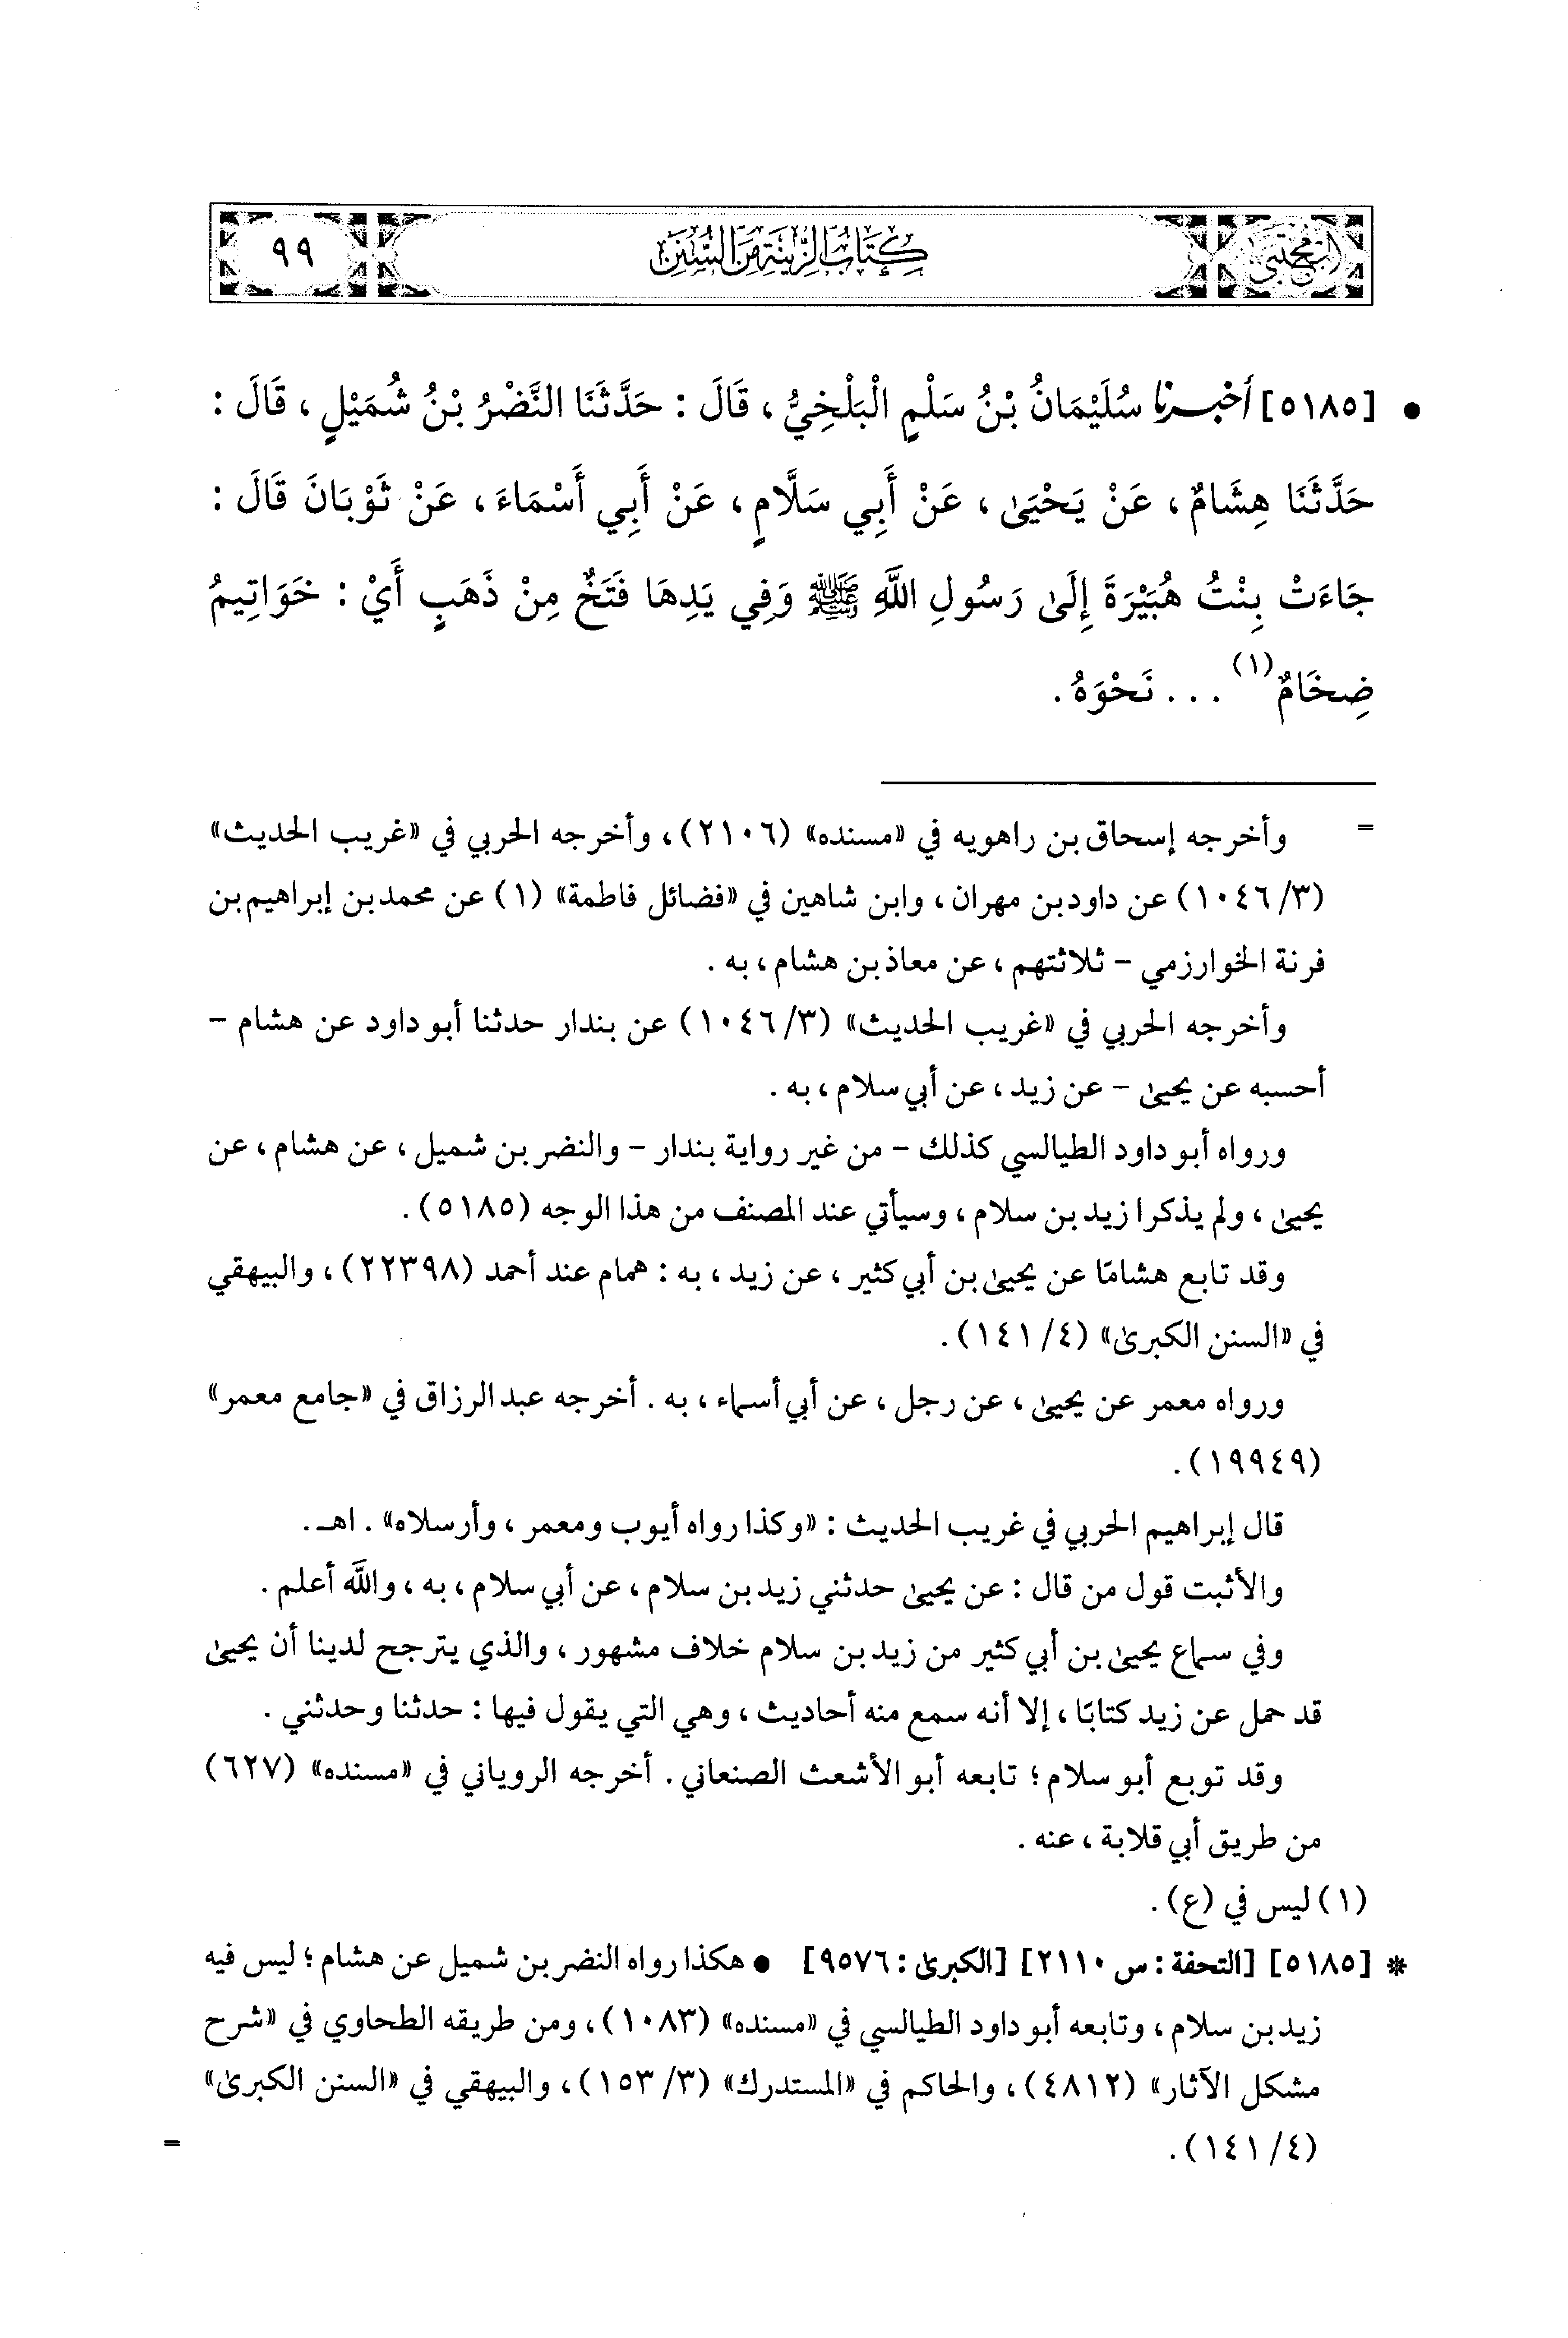 المجتبى
كتاب الزينة من السنن
٩٩
• [٥١٨٥] أخبرنا سُلَيْمَانُ بْنُ سَلْمٍ الْبَلْخِيُّ ، قَالَ : حَدَّثَنَا النَّضْرُ بْنُ شُمَيْلٍ ، قَالَ :
حَدَّثَنَا هِشَامٌ ، عَنْ يَحْيَىٰ ، عَنْ أَبِي سَلَّامٍ ، عَنْ أَبِي أَسْمَاءَ ، عَنْ ثَوْبَانَ قَالَ :
جَاءَتْ بِنْتُ هُبَيْرَةَ إِلَىٰ رَسُولِ اللَّهِ ﷺ وَفِي يَدِهَا فَتَخٌ مِنْ ذَهَبٍ أَيْ : خَوَاتِيمُ
ضِخَامٌ(١) . . . نَحْوَهُ .
= وأخرجه إسحاق بن راهويه في «مسنده» (٢١٠٦) ، وأخرجه الحربي في «غريب الحديث»
(٣/ ١٠٤٦) عن داود بن مهران ، وابن شاهين في «فضائل فاطمة» (١) عن محمد بن إبراهيم بن
فرنة الخوارزمي - ثلاثتهم ، عن معاذ بن هشام ، به .
وأخرجه الحربي في «غريب الحديث» (٣/ ١٠٤٦) عن بندار حدثنا أبو داود عن هشام -
أحسبه عن يحيىٰ - عن زيد ، عن أبي سلام ، به .
ورواه أبو داود الطيالسي كذلك - من غير رواية بندار - والنضر بن شميل ، عن هشام ، عن
يحيىٰ ، ولم يذكرا زيد بن سلام ، وسيأتي عند المصنف من هذا الوجه (٥١٨٥) .
وقد تابع هشامًا عن يحيىٰ بن أبي كثير ، عن زيد ، به : همام عند أحمد (٢٢٣٩٨) ، والبيهقي
في «السنن الكبرىٰ» (٤/ ١٤١) .
ورواه معمر عن يحيىٰ ، عن رجل ، عن أبي أسماء ، به . أخرجه عبد الرزاق في «جامع معمر»
(١٩٩٤٩) .
قال إبراهيم الحربي في غريب الحديث : «وكذا رواه أيوب ومعمر ، وأرسلاه» . اهـ .
والأثبت قول من قال : عن يحيىٰ حدثني زيد بن سلام ، عن أبي سلام ، به ، واللَّه أعلم .
وفي سماع يحيىٰ بن أبي كثير من زيد بن سلام خلاف مشهور ، والذي يترجح لدينا أن يحيىٰ
قد حمل عن زيد كتابًا ، إلا أنه سمع منه أحاديث ، وهي التي يقول فيها : حدثنا وحدثني .
وقد توبع أبو سلام ؛ تابعه أبو الأشعث الصنعاني . أخرجه الروياني في «مسنده» (٦٢٧)
من طريق أبي قلابة ، عنه .
(١) ليس في (ع) .
* [٥١٨٥] [التحفة : س ٢١١٠] [الكبرىٰ : ٩٥٧٦] • هكذا رواه النضر بن شميل عن هشام ؛ ليس فيه
زيد بن سلام ، وتابعه أبو داود الطيالسي في «مسنده» (١٠٨٣) ، ومن طريقه الطحاوي في «شرح
مشكل الآثار» (٤٨١٢) ، والحاكم في «المستدرك» (٣/ ١٥٣) ، والبيهقي في «السنن الكبرىٰ»
(٤/ ١٤١) . =